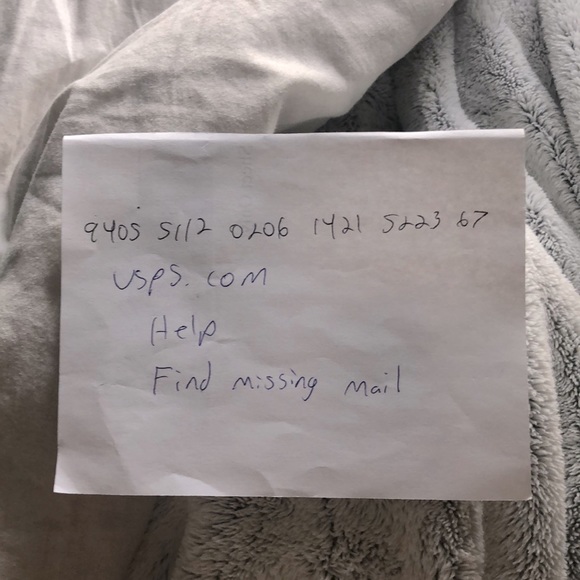 9405 5112 0206 1421 5223 67
USPS.com
Help
Find missing mail